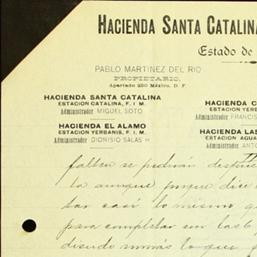 HACIENDA SANTA CATALINA
Estado de
PABLO MARTINEZ DEL RIO
PROPIETARIO.
Apartado 250 México, D. F.
HACIENDA SANTA CATALINA
ESTACION CATALINA, F. I. M.
Administrador MIGUEL SOTO.
HACIENDA EL ALAMO
ESTACION YERBANIS, F. I. M.
Administrador DIONISIO SALAS H
HACIENDA C
ESTACION YERBA
Administrador FRANCIS
HACIENDA LAS
ESTACION AGUA
Administrador ANTO
falten se podrán
la aunque porque dice
sar casi lo mismo q
para completar con las 6